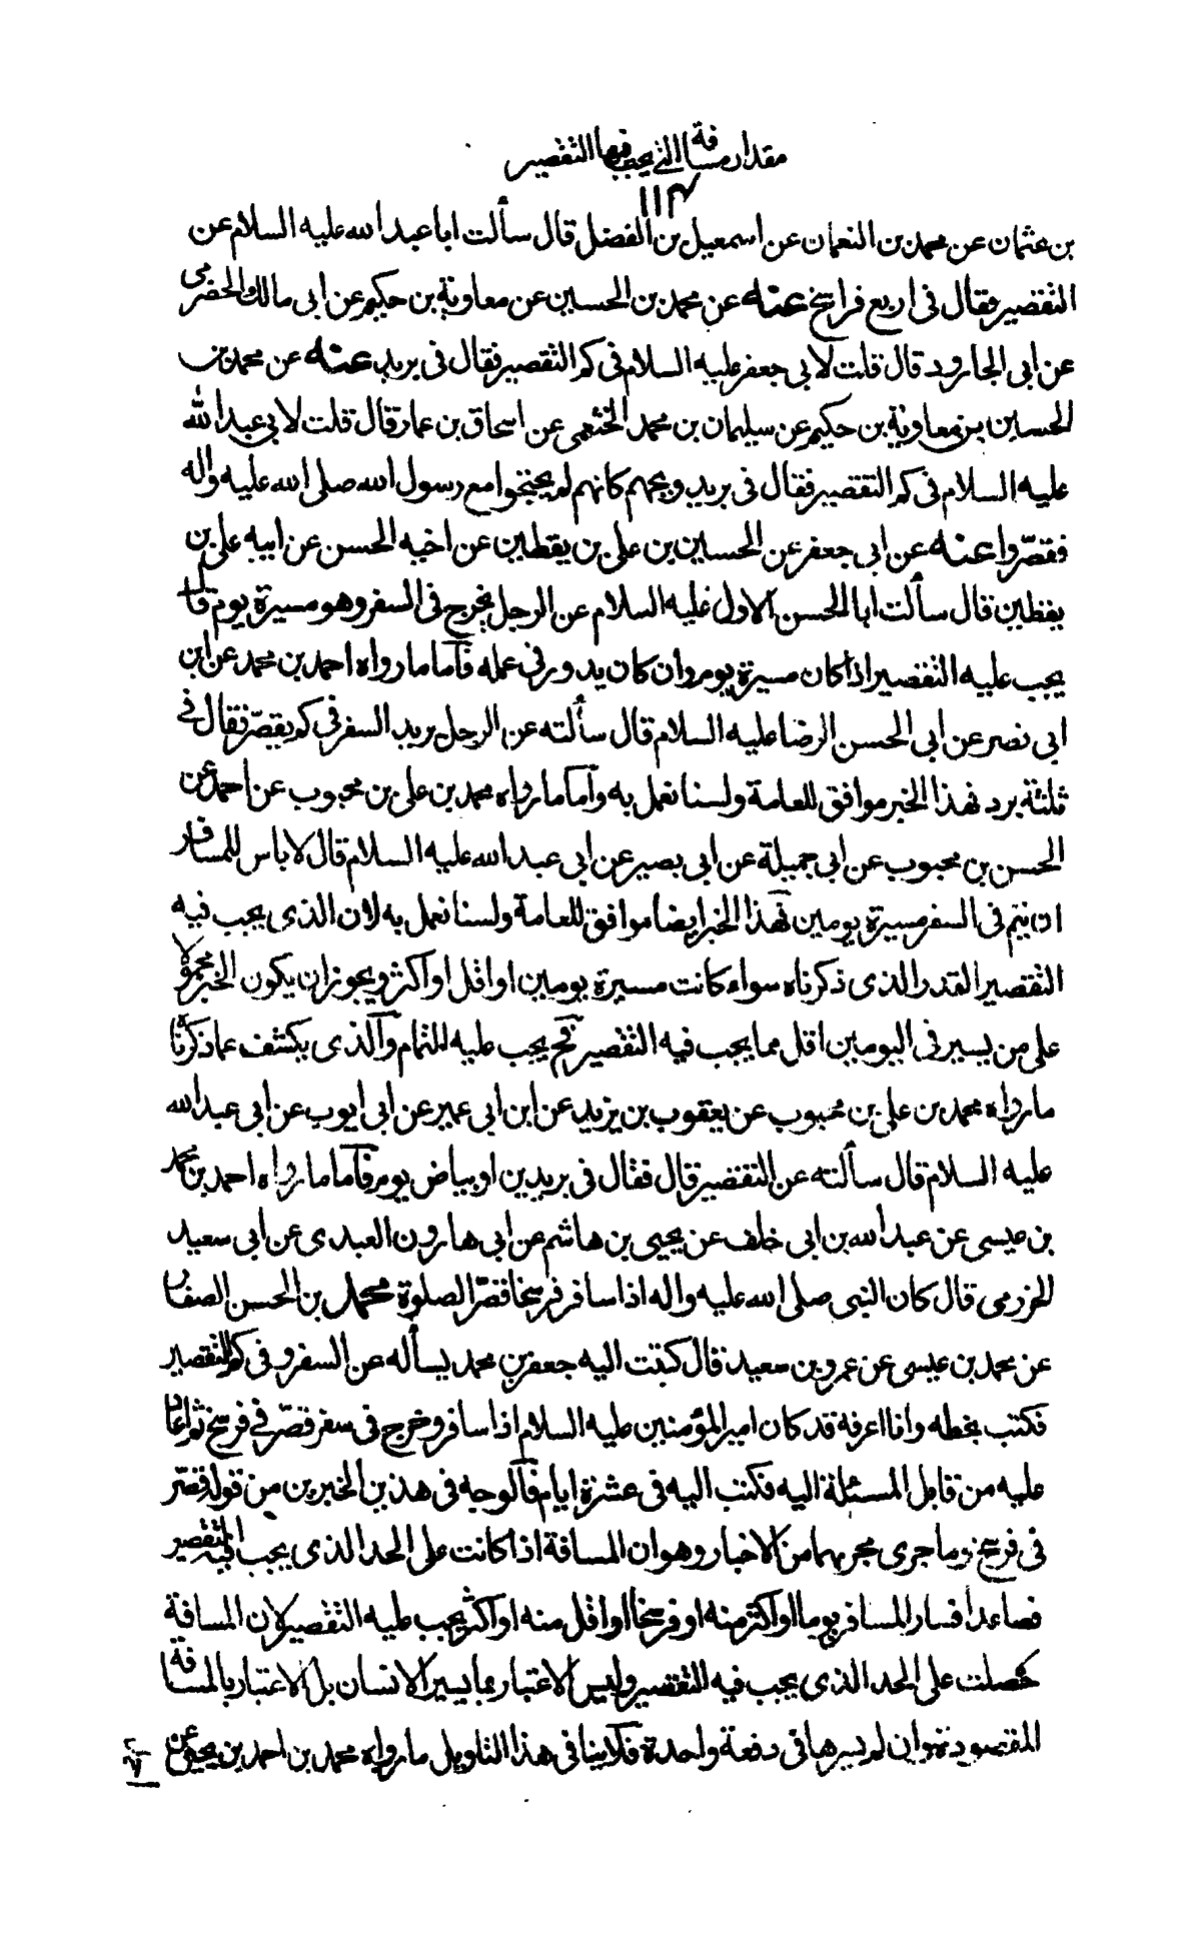 مقدار مسافة التي يجب فيها التقصير
١١٣
بن عثمان عن محمد بن النعمان عن اسمعيل بن الفضل قال سألت ابا عبد الله عليه السلام عن
التقصير فقال فى اربع فراسخ عنه عن محمد بن الحسين عن معاوية بن حكيم عن ابى مالك الحضرمى
عن ابى الجارود قال قلت لابى جعفر عليه السلام فى كم التقصير فقال فى بريد عنه عن محمد بن
الحسين بن معاوية بن حكيم عن سليمان بن محمد الخثعمى عن اسحاق بن عمار قال قلت لابى عبد الله
عليه السلام فى كم التقصير فقال فى بريد ويحهم كانهم لم يحجوا مع رسول الله صلى الله عليه واله
فقصّروا عنه عن ابى جعفر عن الحسين بن على بن يقطين عن اخيه الحسن عن ابيه على بن
يقطين قال سألت ابا الحسن الاول عليه السلام عن الرجل يخرج فى السفر وهو مسيرة يوم قال
يجب عليه التقصير اذا كان مسيرة يوم وان كان يدور فى عمله فآما ما رواه احمد بن محمد عن ابن
ابى نصر عن ابى الحسن الرضا عليه السلام قال سألته عن الرجل يريد السفر فى كم يقصّر فقال فى
ثلثة برد فهذا الخبر موافق للعامة ولسنا نعمل به وآما ما رواه محمد بن على بن محبوب عن احمد عن
الحسن بن محبوب عن ابى جميلة عن ابى بصير عن ابى عبد الله عليه السلام قال لا باس للمسافر
ان يتم فى السفر مسيرة يومين فهذا الخبر ايضا موافق للعامة ولسنا نعمل به لان الذى يجب فيه
التقصير القدر الذى ذكرناه سواء كانت مسيرة يومين او اقل او اكثر ويجوز ان يكون الخبر محمولا
على من يسير فى اليومين اقل مما يجب فيه التقصير فح يجب عليه التمام وآلذى يكشف عما ذكرناه
ما رواه محمد بن على بن محبوب عن يعقوب بن يزيد عن ابن ابى عمير عن ابى ايوب عن ابى عبد الله
عليه السلام قال سألته عن التقصير قال فقال فى بريدين او بياض يوم فآما ما رواه احمد بن محمد
بن عيسى عن عبد الله بن ابى خلف عن يحيى بن هاشم عن ابى هارون العبدى عن ابى سعيد
الخدرى قال كان النبى صلى الله عليه واله اذا سافر فرسخا قصّر الصلوة محمد بن الحسن الصفار
عن محمد بن عيسى عن عمرو بن سعيد قال كتبت اليه جعفر بن محمد يسأله عن السفر وفى كم التقصير
فكتب بخطه وانا اعرفة قد كان امير المؤمنين عليه السلام اذا سافر وخرج فى سفر قصّر فى فرسخ ثم اعاد
عليه من قابل المسئلة اليه فكتب اليه فى عشرة ايام فآلوجه فى هذين الخبرين من قوله قصّر
فى فرسخ وما جرى مجريهما من الاخبار وهو ان المسافة اذا كانت على الحد الذى يجب فيه التقصير
فصاعدا فسار المسافر يوما او اكثر منه او فرسخا او اقل منه او اكثر يجب عليه التقصير لان المسافة
حصلت على الحد الذى يجب فيه التقصير وليس الاعتبار بما يسير الانسان بل الاعتبار بالمسافة
المقصودة وان لم يسرها فى دفعة واحدة فلا ينافى هذا التاويل ما رواه محمد بن احمد بن يحيى عن